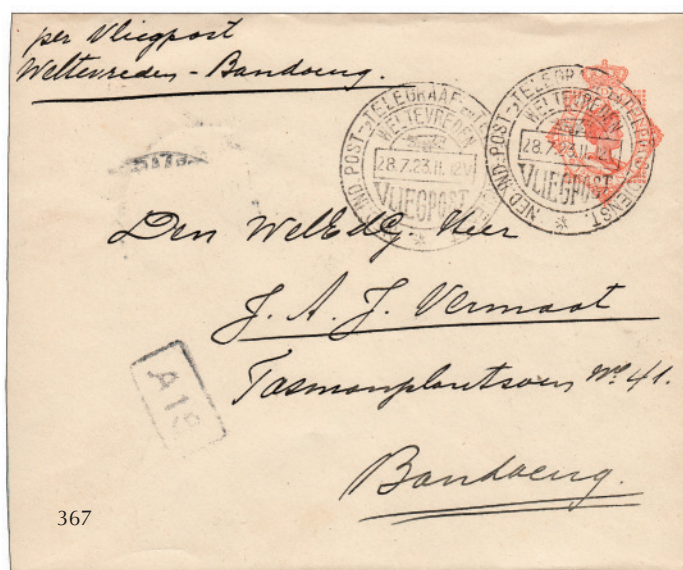 per Vliegpost
Weltevreden - Bandoeng.
NED. IND. POST-, TELEGRAAF- EN
WELTEVREDEN
28.7.23.11.12V
VLIEGPOST
NED. IND. POST-, TELEGRAAF- EN DIENST.
WELTEVREDEN
28.7.23.11.12
VLIEGPOST
Den WelEdG Heer
J. A. J. Vermaat
Tasmanplantsoen No 41.
A19
Bandoeng.
367